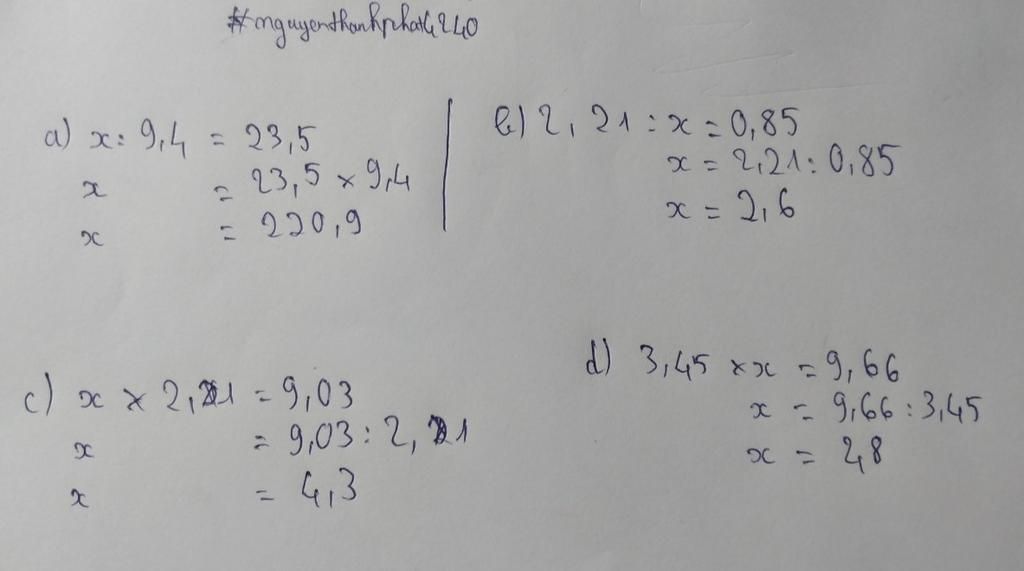 #nguyenthanhphat4240
a) x : 9,4 = 23,5
x = 23,5 × 9,4
x = 220,9
b) 2,21 : x = 0,85
x = 2,21 : 0,85
x = 2,6
c) x × 2,1 = 9,03
x = 9,03 : 2,1
x = 4,3
d) 3,45 × x = 9,66
x = 9,66 : 3,45
x = 2,8